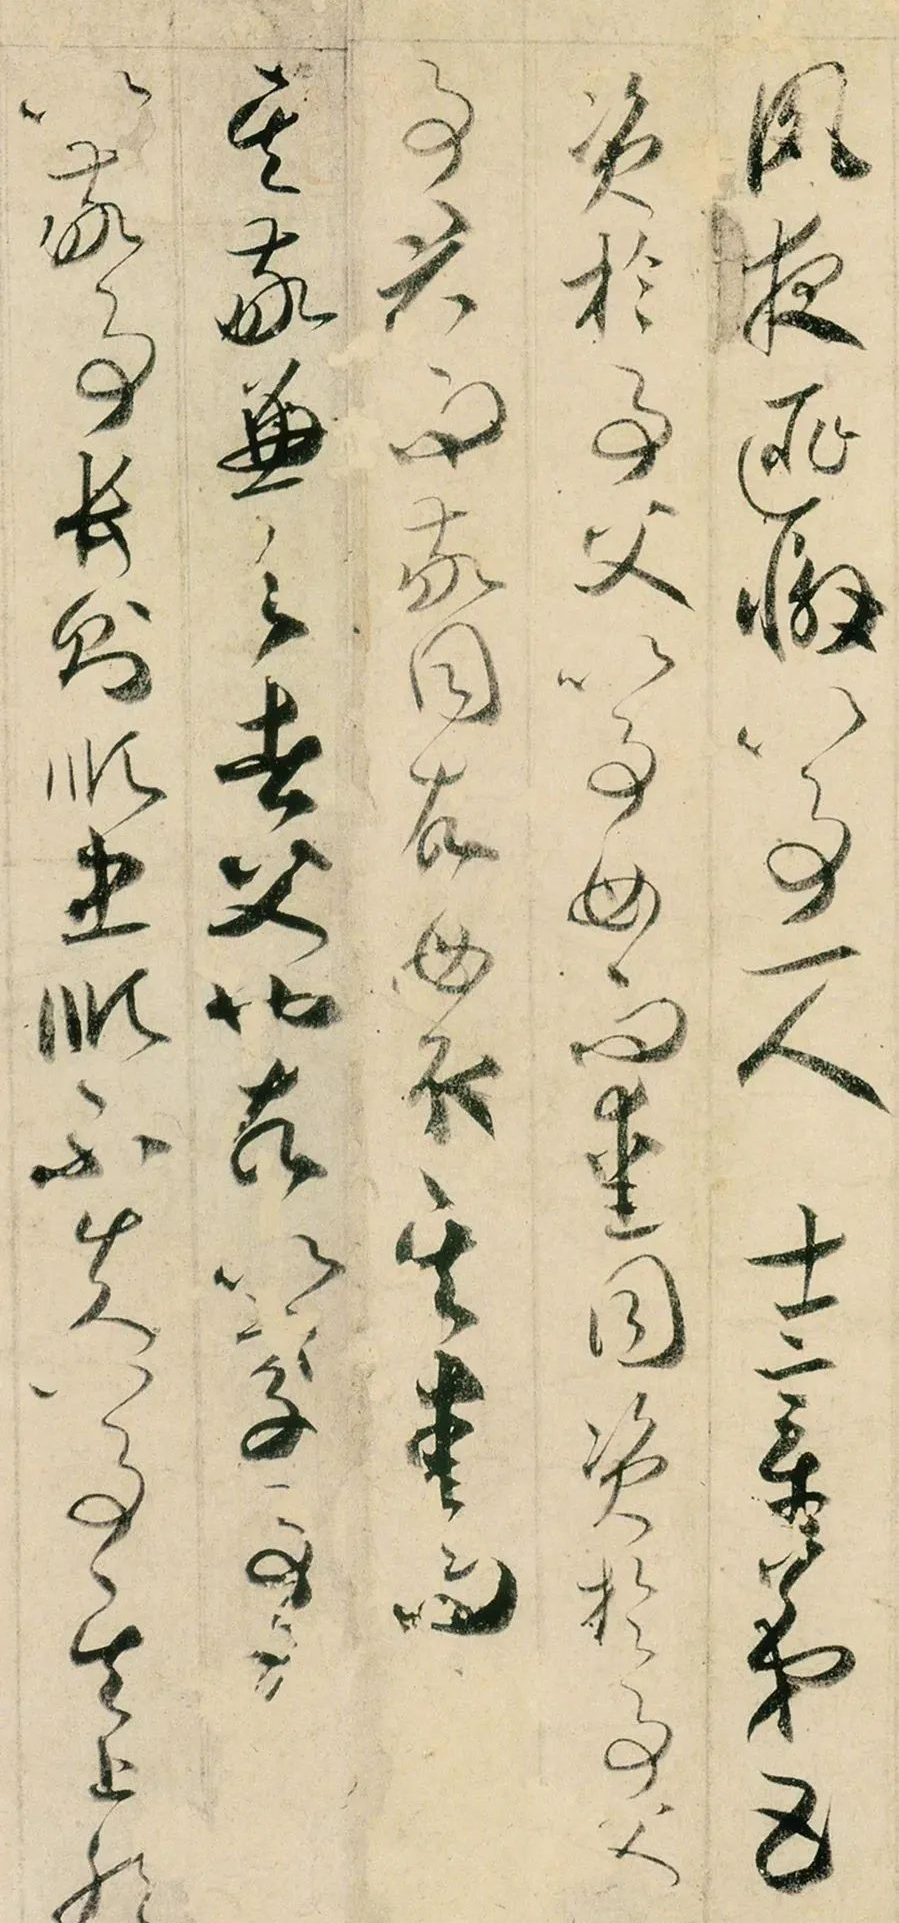 夙夜匪懈以事一人 士章第五
資於事父以事母而愛同資於事父
事君而敬同故母取其愛而
其敬兼之者父也故以孝事君
以敬事長則順忠順不失以事其上然